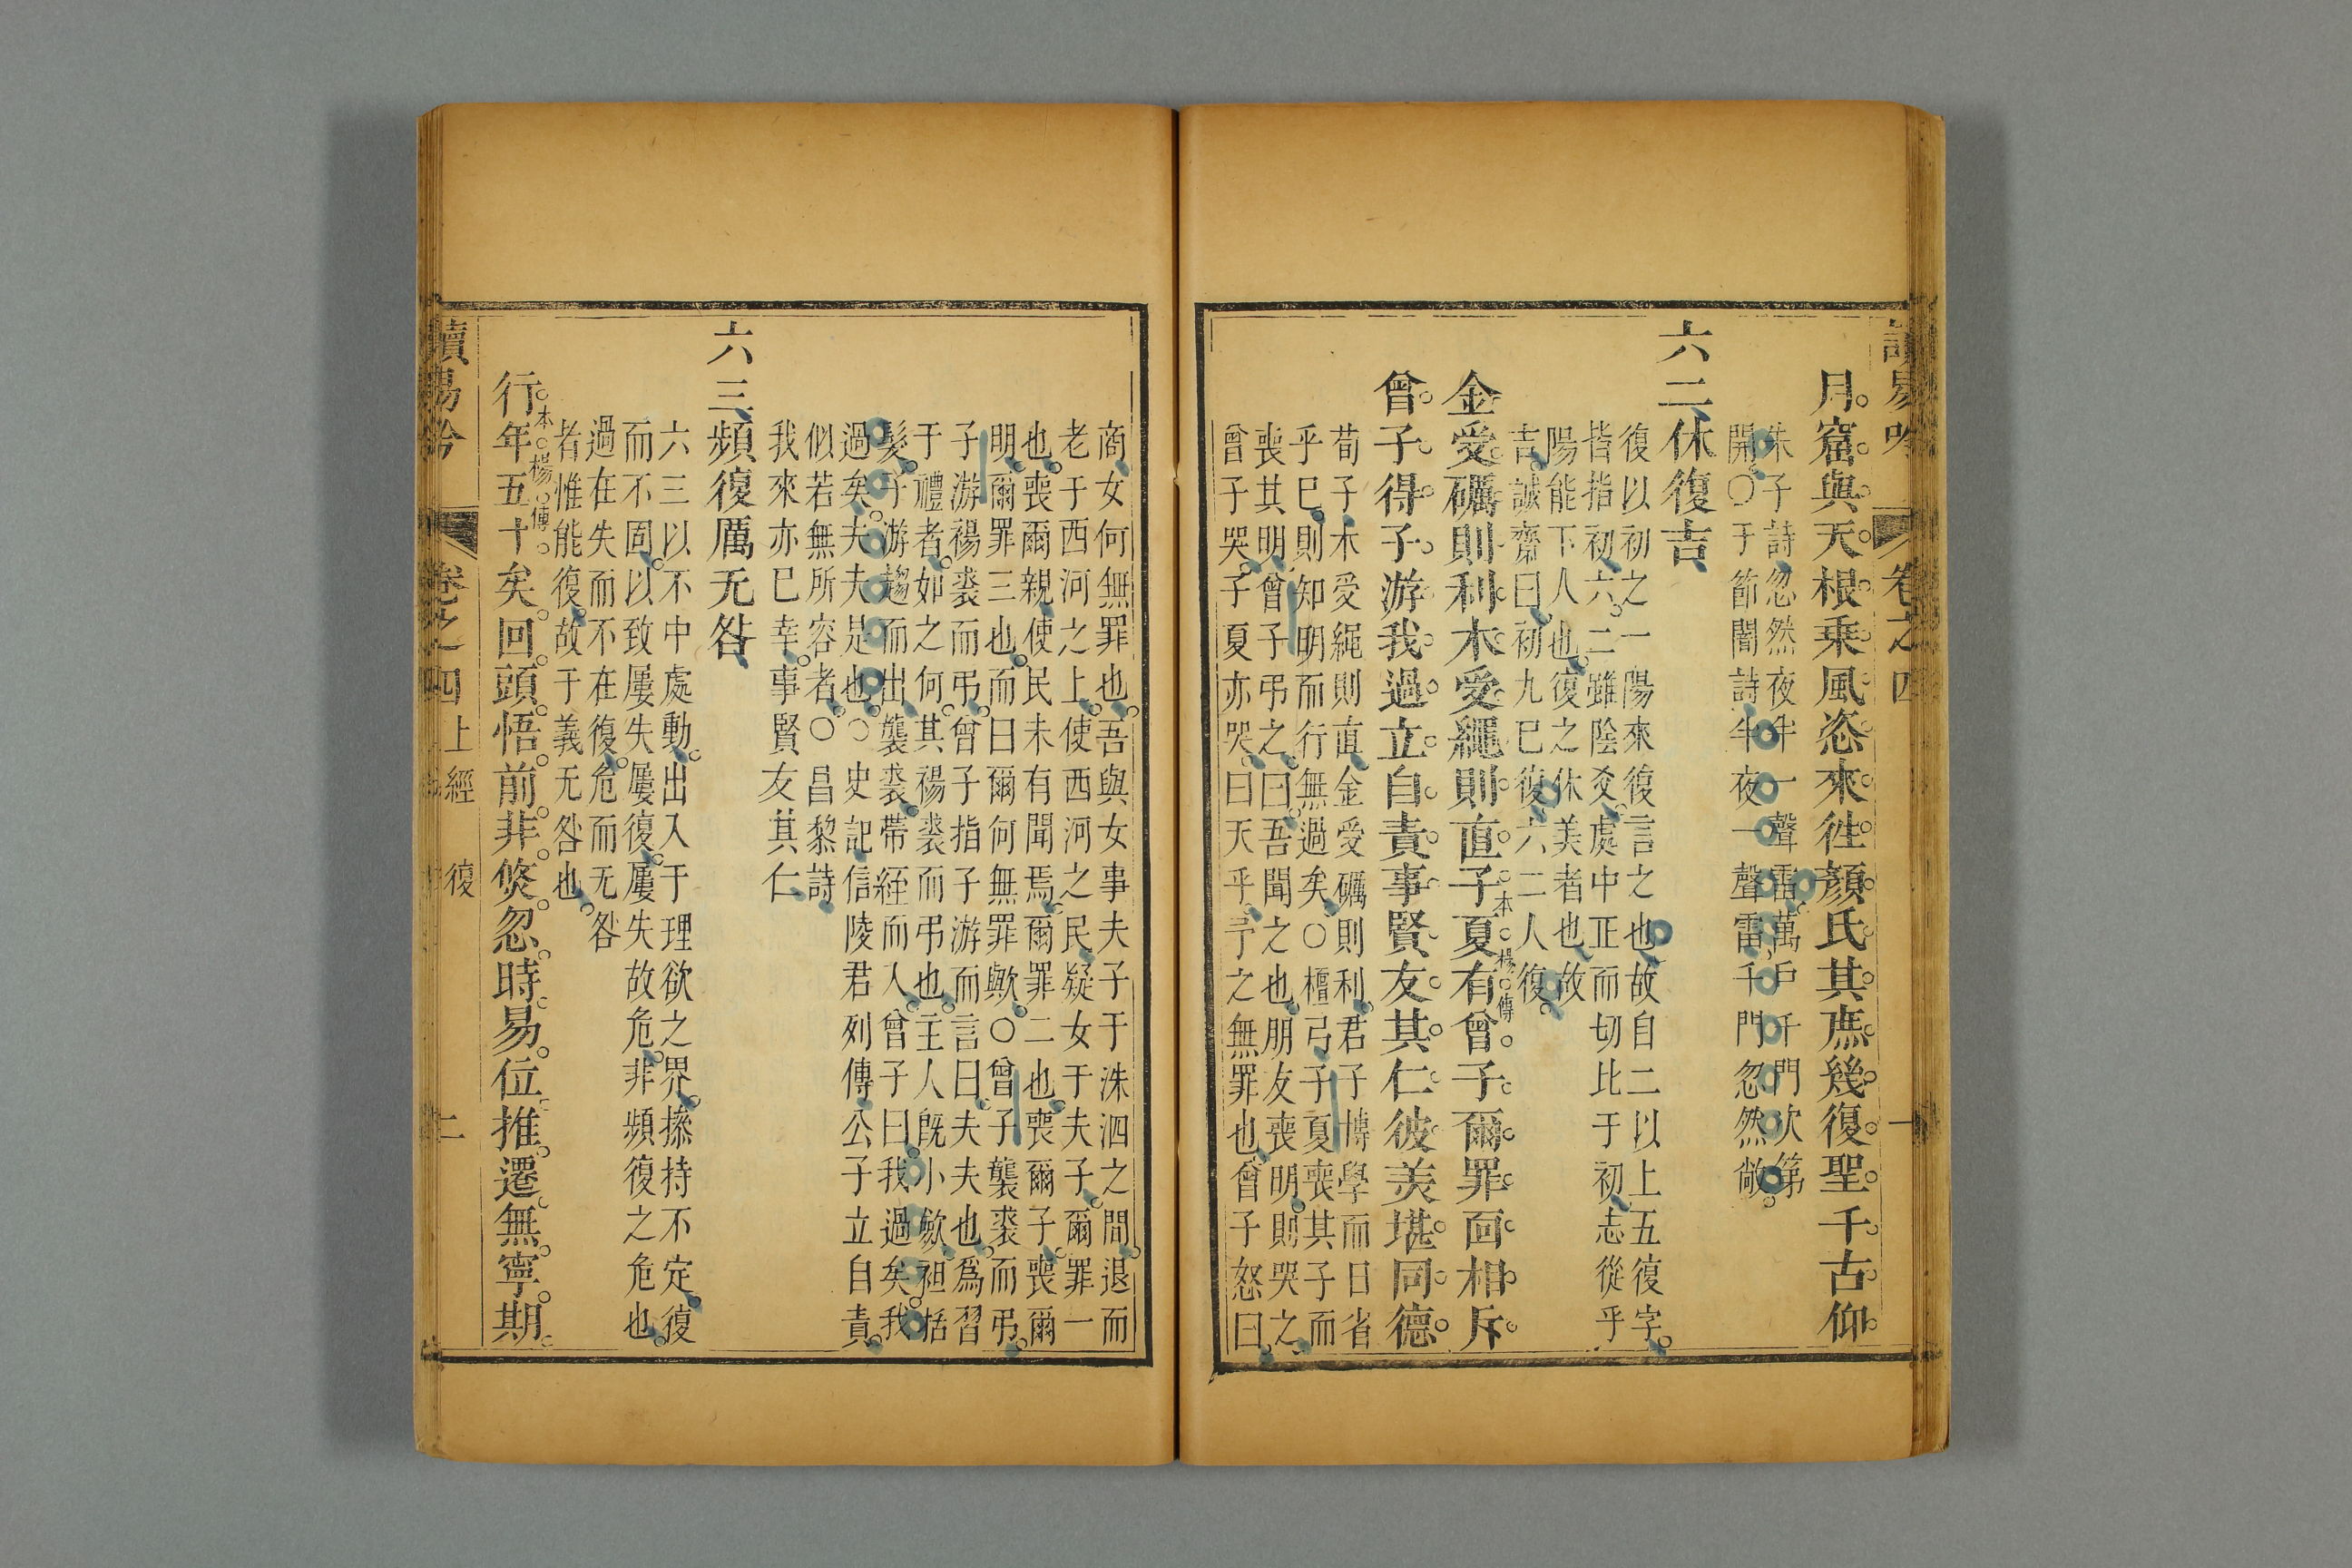 讀易吟 卷之四
月窟與天根乘風恣來往顏氏其庶幾復聖千古仰
朱子詩忽然夜半一聲雷萬戶千門次第
開○于節闇詩半夜一聲雷千門忽然敞
六二休復吉
復以初之一陽來復言之也故自二以上五復字
皆指初六二雖陰爻處中正而切比于初志從乎
陽能下人也復之休美者也故
吉誠齋曰初九已復六二人復
金受礪則利木受繩則直子夏有曾子爾罪面相斥
本 楊 傳
曾子得子游我過立自責事賢友其仁彼羡堪同德
荀子木受繩則直金受礪則利君子博學而日省
乎已則知明而行無過矣○檀弓子夏喪其子而
喪其明曾子弔之曰吾聞之也朋友喪明則哭之
曾子哭子夏亦哭曰天乎予之無罪也曾子怒曰
商女何無罪也吾與女事夫子于洙泗之間退而
老于西河之上使西河之民疑女于夫子爾罪一
也喪爾親使民未有聞焉爾罪二也喪爾子喪爾
明爾罪三也而曰爾何無罪歟○曾子襲裘而弔
子游裼裘而弔曾子指子游而言曰夫夫也爲習
于禮者如之何其裼裘而弔也主人旣小歛袒括
髮子游趨而出襲裘帶絰而入曾子曰我過矣我
過矣夫夫是也○史記信陵君列傳公子立自責
似若無所容者○昌黎詩
我來亦已幸事賢友其仁
六三頻復厲无咎
六三以不中處動出入于理欲之界搽持不定復
而不固以致屢失屢復屢失故危非頻復之危也
過在失而不在復危而无咎
者惟能復故于義无咎也
本 楊 傳
行年五十矣回頭悟前非倐忽時易位推遷無寧期
讀易吟 卷之四 上經 復 二